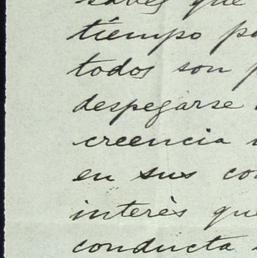 sabes que
tiempo
todos son
despegarse
creencia
en sus
interès que
conducta